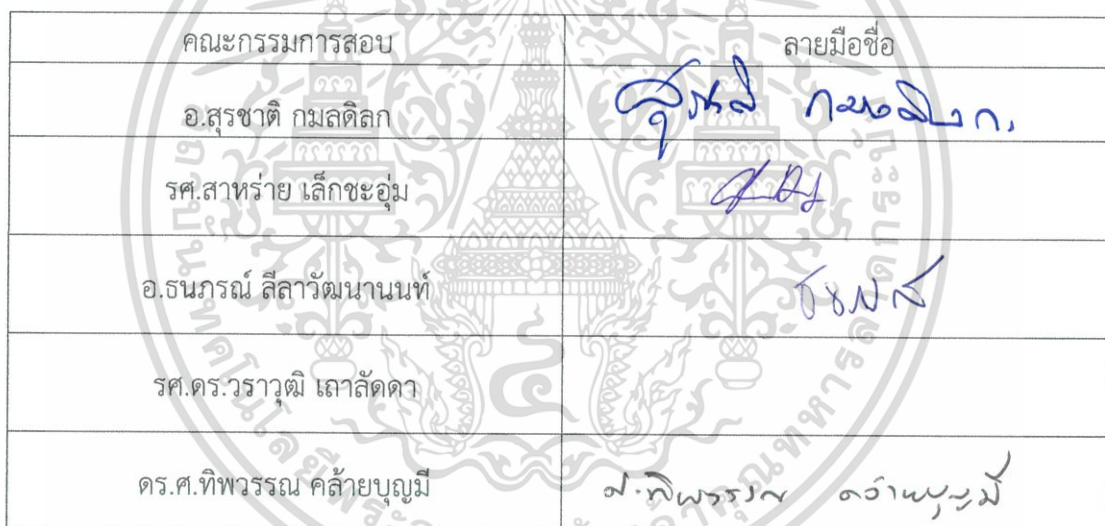 คณะกรรมการสอบ ลายมือชื่อ
อ.สุรชาติ กมลดิลก สุรชาติ กมลดิลก
รศ.สาหร่าย เล็กชะอุ่ม
อ.ธนภรณ์ ลีลาวัฒนานนท์ ธนภรณ์
รศ.ดร.วราวุฒิ เถาลัดดา
ดร.ศ.ทิพวรรณ คล้ายบุญมี ศ.ทิพวรรณ คล้ายบุญมี